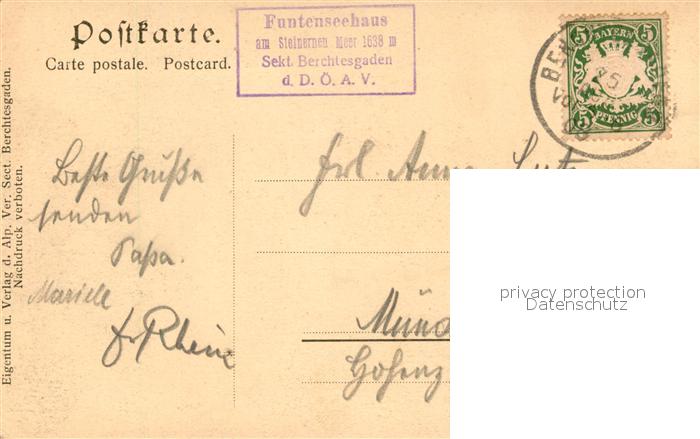 Postkarte.
Carte postale. Postcard.
Funtenseehaus
am Steinernen Meer 1638 m
Sekt. Berchtesgaden
d. D. Ö. A. V.
5 BAYERN 5
5 PFENNIG 5
BER
Eigentum u. Verlag d. Alp. Ver. Sect. Berchtesgaden.
Nachdruck verboten.
Beste Grüße
senden
Papa.
Mariele
Frl. Anna
Münc
Hohenz
privacy protection
Datenschutz